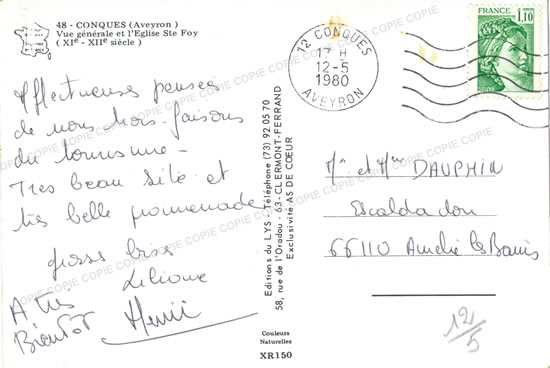 48 - CONQUES (Aveyron)
Vue générale et l'Eglise Ste Foy
(XIe - XIIe siècle)
Affectueuses pensées
de nous trois. faisons
du tourisme -
Très beau site et
très belle promenade
grosses bises
Liliane
Henri
A très
Bientôt
Editions du LYS - Téléphone (73) 92.05.70
58, rue de l'Oradou - 63-CLERMONT-FERRAND
Exclusivité AS DE CŒUR
Couleurs
Naturelles
XR150
12 CONQUES
17 H
12-5
1980
AVEYRON
FRANCE
1,10
Mr et Mme DAUPHIN
66110 Amélie les Bains
12/5
COPIE COPIE COPIE COPIE COPIE COPIE